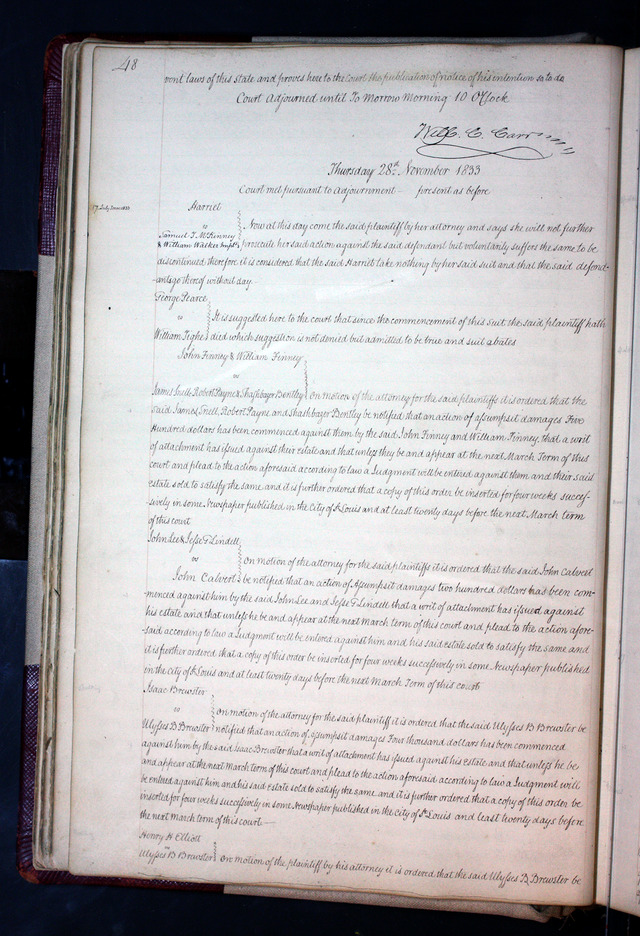 48
ront laws of this state and proves here to the Court the publication of notice of his intention so to do
Court Adjourned until To Morrow Morning 10 OClock
Wm. C. Carr
Thursday 28th November 1833
Court met pursuant to Adjournment – present as before
Harriet
vs
Samuel T. McKinney
& William Walker
Now at this day come the said plaintiff by her attorney and says she will not further
prosecute her said action against the said defendant but voluntarily suffers the same to be
discontinued therefore it is considered that the said Harriet take nothing by her said suit and that the said defend-
-ants go thereof without day
George Pearce
vs
William Tighe
It is suggested here to the court that since the commencement of this Suit the said plaintiff hath
died which suggestion is not denied but admitted to be true and suit abates
John Finney & William Finney
vs
James Snell, Robert Payne & Shashbazer Bentley
on motion of the attorney for the said plaintiffs it is ordered that the
said James Snell, Robert Payne and Shashbazer Bentley be notified that an action of assumpsit damages Five
Hundred dollars has been commenced against them by the said John Finney and William Finney, that a writ
of attachment has issued against their estate and that unless they be and appear at the next March Term of this
court and plead to the action aforesaid according to law a Judgment will be entered against them and their said
estate sold to satisfy the same and it is further ordered that a copy of this order be inserted for four weeks succes-
sively in some Newspaper published in the City of St Louis and at least twenty days before the next March term
of this court
John Lee & Jesse G Lindell
vs
John Calvert
on motion of the attorney for the said plaintiffs it is ordered that the said John Calvert
be notified that an action of Assumpsit damages two hundred dollars has been com-
menced against him by the said John Lee and Jesse G Lindell that a writ of attachment has issued against
his estate and that unless he be and appear at the next march term of this court and plead to the action afore-
said according to law a Judgment will be entered against him and his said estate sold to satisfy the same and
it is further ordered that a copy of this order be inserted for four weeks successively in some Newspaper published
in the City of St Louis and at least twenty days before the next March Term of this court
Isaac Brewster
vs
Ulysses B Brewster
on motion of the attorney for the said plaintiff it is ordered that the said Ulysses B Brewster be
notified that an action of assumpsit damages Four thousand dollars has been commenced
against him by the said Isaac Brewster that a writ of attachment has issued against his estate and that unless he be
and appear at the next march term of this court and plead to the action aforesaid according to law a Judgment will
be entered against him and his said estate sold to satisfy the same and it is further ordered that a copy of this order be
inserted for four weeks successively in some Newspaper published in the City of St Louis and least twenty days before
the next march term of this court —
Henry H Elliott
vs
Ulysses B Brewster
on motion of the plaintiff by his attorney it is ordered that the said Ulysses B Brewster be